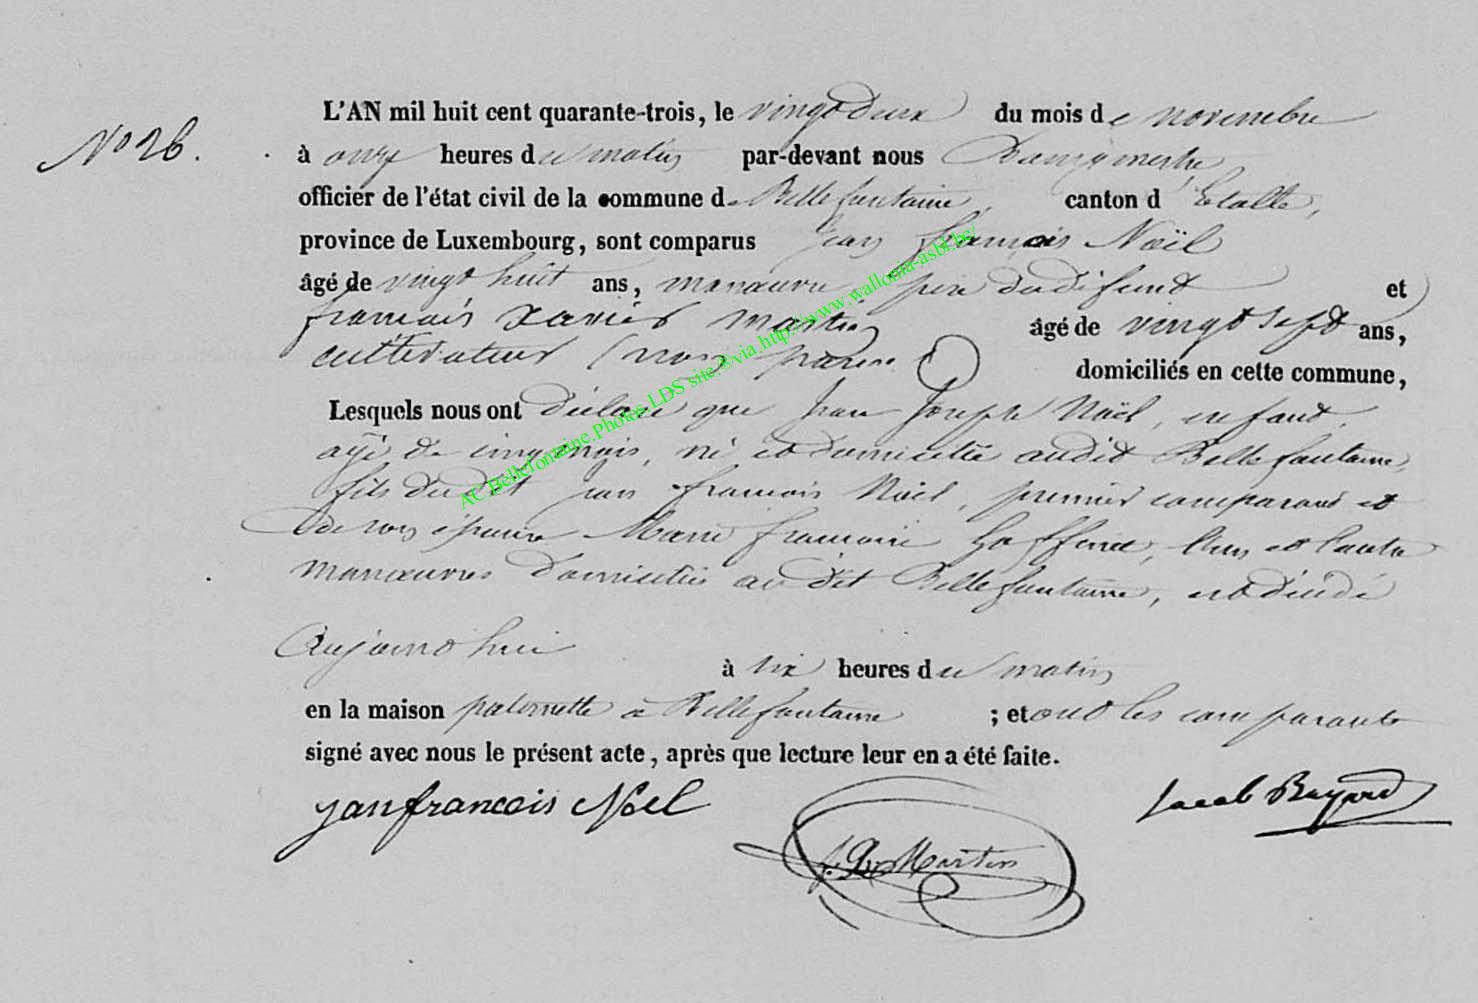 N° 26.
L'AN mil huit cent quarante-trois, le vingt deux du mois de novembre
à onze heures du matin par-devant nous Bourgmestre,
officier de l'état civil de la commune de Bellefontaine, canton d'Etalle,
province de Luxembourg, sont comparus Jean françois Noël
âgé de vingt huit ans, manœuvre, père du défunt et
françois Xavier Martin âgé de vingt sept ans,
cultivateur (non parent) domiciliés en cette commune,
Lesquels nous ont déclaré que Jean Joseph Noël, enfant,
agé de cinq mois, né et domicilié audit Bellefontaine,
fils du dit jean françois Noël, premier comparant et
de son épouse Marie françoise Goffinet, l'un et l'autre
manœuvres domiciliés au dit Bellefontaine, est décédé
Aujourd'hui
à six heures du matin
en la maison paternelle à Bellefontaine ; et ont les comparants
signé avec nous le présent acte, après que lecture leur en a été faite.
jean francois Noel
Jacob Bayard
f. X. Martin
AC.Bellefontaine.Photos.LDS site.©via.http://www.wallonia-asbl.be/